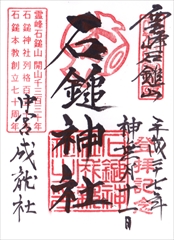 霊峰石鎚山
登拝記念
平成二十七年
神
石鎚神社
霊峰石鎚山 開山千三百三十年
石鎚神社列格百
石鎚本教創立七十周年
中宮成就社